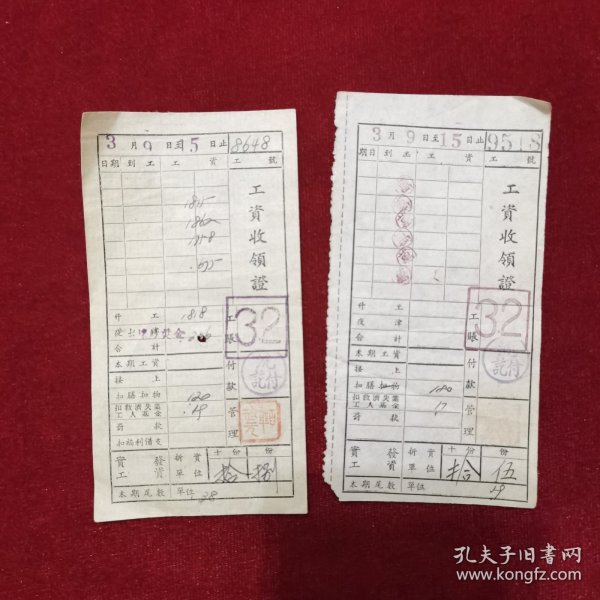 3 月 9 日至 5 日止 8648
日期 到 工 工 資 工 號
工資收領證
1815
1860
.675
件 工 1818
合 計
本期工資
接 上
扣膳扣物 120
扣救濟失業工人基金 .19
罰 款
扣福利借支
工賬
32
付款
管理
實發工資 折實單位 十 份 份
拾 捌
本期尾數 單位 .28
3 月 9 日至 15 日止 9518
期日 到 工 工 資 工 號
工資收領證
件 工
夜 津
合 計
本期工資
接 上
扣膳扣物 120
扣救濟失業工人基金 17
罰 款
扣福利借支
工賬
32
付款
管理
實發工資 折實單位 十 份 份
拾 伍
本期尾數 單位
孔夫子旧书网
www.kongfz.com